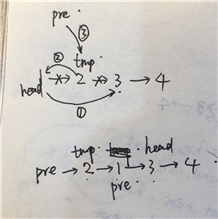 pre.
③
tmp.
②
head → 2 → 3 → 4
①
tmp. head
pre → 2 → 1 → 3 → 4
pre.